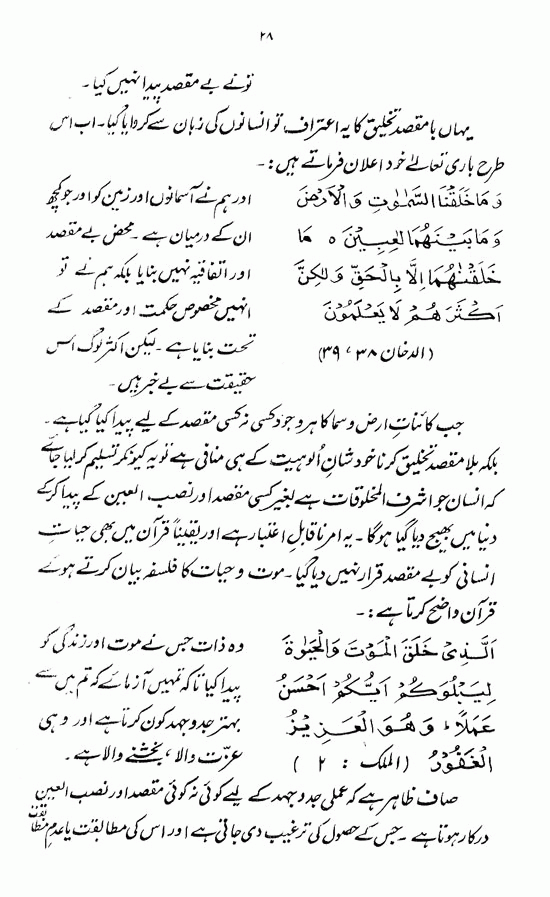 ۲۸
تونے بے مقصد پیدا نہیں کیا۔
یہاں بامقصد تخلیق کا یہ اعتراف، تو انسانوں کی زبان سے کروایا گیا۔ اب اس
طرح باری تعالےٰ خود اعلان فرماتے ہیں:-
وَمَا خَلَقْنَا السَّمٰوٰتِ وَالْاَرْضَ
وَمَا بَيْنَهُمَا لٰعِبِيْنَ ○ مَا
خَلَقْنٰهُمَا اِلَّا بِالْحَقِّ وَلٰكِنَّ
اَكْثَرَ هُمْ لَا يَعْلَمُوْنَ
(الدخان ۳۸، ۳۹)
اور ہم نے آسمانوں اور زمین کو اور جو کچھ
ان کے درمیان ہے۔ محض بے مقصد
اور اتفاقیہ نہیں بنایا بلکہ ہم نے تو
انہیں مخصوص حکمت اور مقصد کے
تحت بنایا ہے۔ لیکن اکثر لوگ اس
حقیقت سے بے خبر ہیں۔
جب کائناتِ ارض و سما کا ہر وجود کسی نہ کسی مقصد کے لیے پیدا کیا گیا ہے۔
بلکہ بلا مقصد تخلیق کرنا خود شانِ اُلوہیت کے ہی منافی ہے تو یہ کیونکر تسلیم کر لیا جائے
کہ انسان جو اشرف المخلوقات ہے بغیر کسی مقصد اور نصب العین کے پیدا کر کے
دنیا میں بھیج دیا گیا ہوگا۔ یہ امر ناقابلِ اعتبار ہے اور یقیناً قرآن میں بھی حیاتِ
انسانی کو بے مقصد قرار نہیں دیا گیا۔ موت و حیات کا فلسفہ بیان کرتے ہوئے
قرآن واضح کرتا ہے:-
اَلَّذِیْ خَلَقَ الْمَوْتَ وَالْحَيٰوةَ
لِيَبْلُوَكُمْ اَيُّكُمْ اَحْسَنُ
عَمَلًا ؕ وَهُوَ الْعَزِيْزُ
الْغَفُوْرُ (الملک : ۲)
وہ ذات جس نے موت اور زندگی کو
پیدا کیا تاکہ تمہیں آزمائے کہ تم میں سے
بہتر جدوجہد کون کرتا ہے اور وہی
عزّت والا، بخشنے والا ہے۔
صاف ظاہر ہے کہ عملی جدوجہد کے لیے کوئی نہ کوئی مقصد اور نصب العین
درکار ہوتا ہے۔ جس کے حصول کی ترغیب دی جاتی ہے اور اس کی مطابقت یا عدم مطابقت